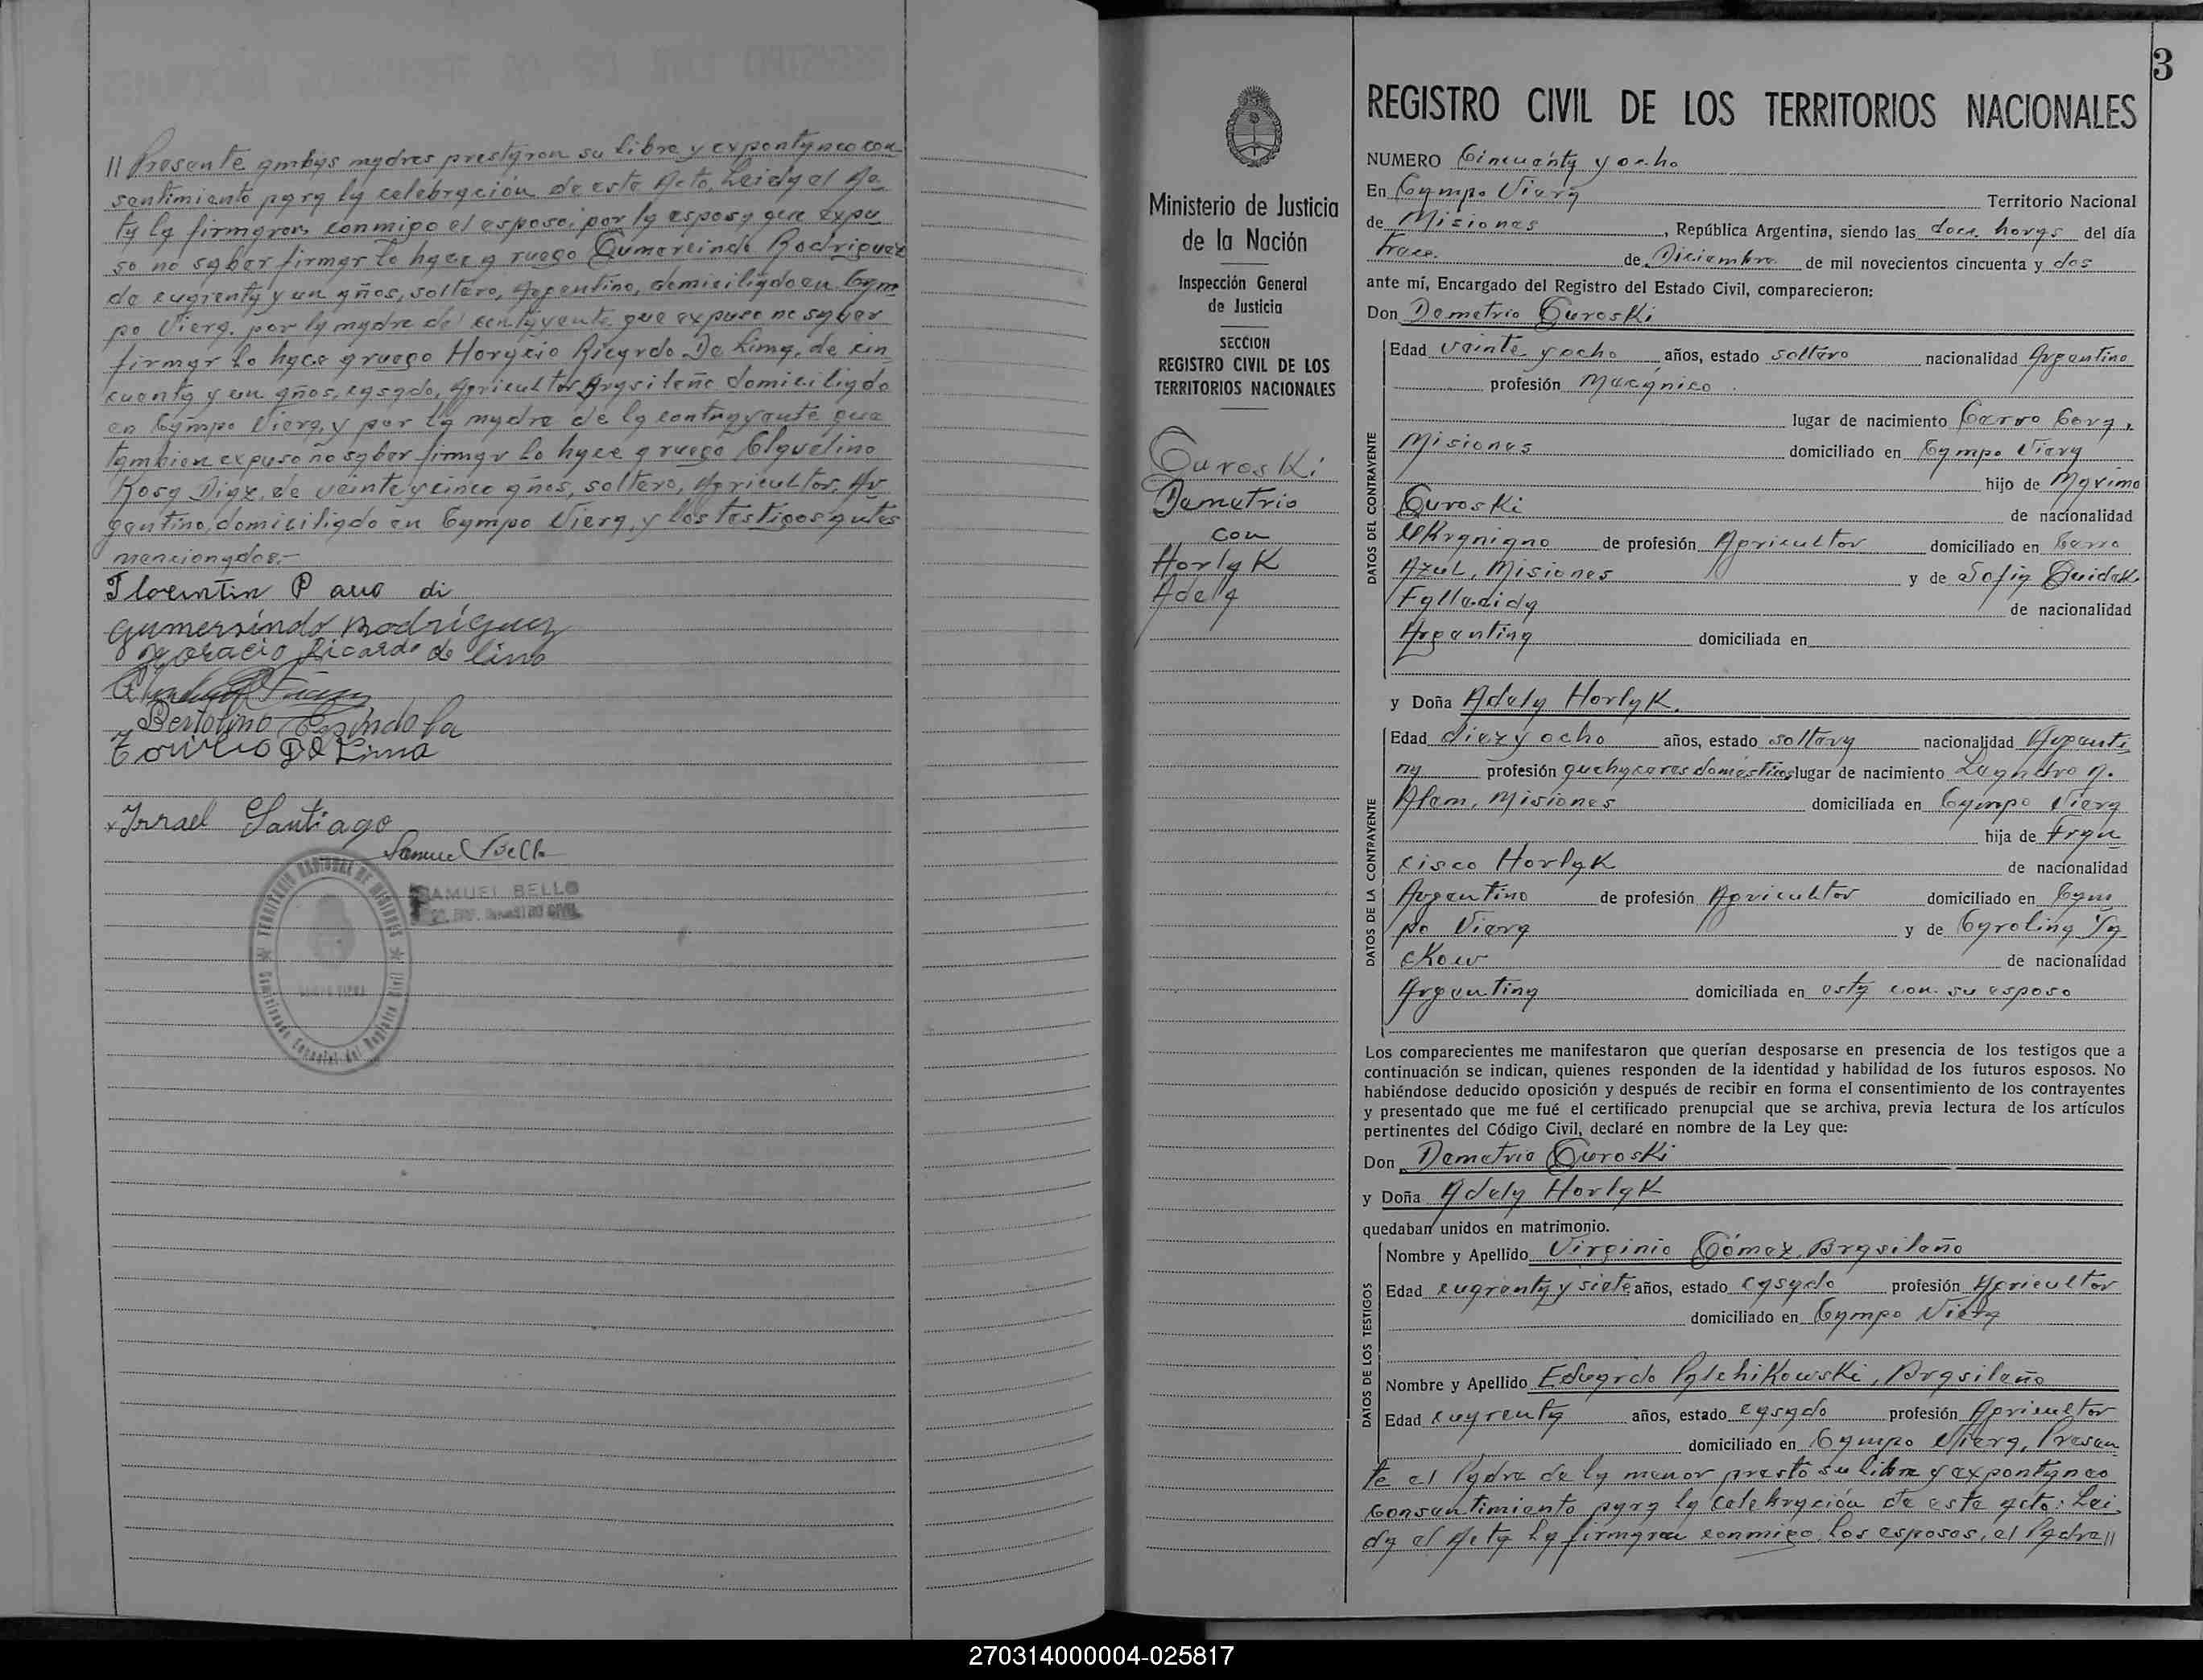 // Presente ambas madres prestaron su libre y expontaneo con
sentimiento para la celebración de este Acto. Leida el Ac
ta la firmaron conmigo el esposo, por la esposa que expu
so no saber firmar lo hace a ruego Gumercindo Rodriguez
de cuarenta y un años, soltero, Argentino, domiciliado en Cam
po Viera, por la madre del contrayente que expuso no saber
firmar lo hace a ruego Horacio Ricardo De Lima, de cin
cuenta y un años, casado, Agricultor Brasileño domiciliado
en Campo Viera, y por la madre de la contrayente que
tambien expuso no saber firmar lo hace a ruego
Rosa Diaz, de veinte y cinco años, soltero, Agricultor, Ar
gentino, domiciliado en Campo Viera, y los testigos antes
mencionados.-
Florentin P
Gumersindo Rodríguez
Horacio Ricardo de Lima
Bertolino Espindola
Toribio De Lima
Irrael Santiago
Samuel Bello
SAMUEL BELLO
TERRITORIO NACIONAL DE MISIONES
3
REGISTRO CIVIL DE LOS TERRITORIOS NACIONALES
Ministerio de Justicia
de la Nación
Inspección General
de Justicia
SECCION
REGISTRO CIVIL DE LOS
TERRITORIOS NACIONALES
Guroski
Demetrio
con
Horlak
Adela
NUMERO Cincuenta y ocho
En Campo Viera Territorio Nacional
de Misiones, República Argentina, siendo las doce horas del día
trece de Diciembre de mil novecientos cincuenta y dos
ante mí, Encargado del Registro del Estado Civil, comparecieron:
Don Demetrio Guroski
DATOS DEL CONTRAYENTE
Edad veinte y ocho años, estado soltero nacionalidad Argentino
profesión Mecánico
lugar de nacimiento Cerro Cora,
Misiones domiciliado en Campo Viera
hijo de Maximo
Guroski de nacionalidad
Ukraniano de profesión Agricultor domiciliado en Cerro
Azul, Misiones y de Sofia
Fallecida de nacionalidad
Argentina domiciliada en
y Doña Adela Horlak.
DATOS DE LA CONTRAYENTE
Edad diez y ocho años, estado soltera nacionalidad Argenti
na profesión quehaceres domesticos lugar de nacimiento Leandro N.
Alem, Misiones domiciliada en Campo Viera
hija de Fran
cisco Horlak de nacionalidad
Argentino de profesión Agricultor domiciliado en Cam
po Viera y de Carolina
de nacionalidad
Argentina domiciliada en esta con su esposo
Los comparecientes me manifestaron que querían desposarse en presencia de los testigos que a
continuación se indican, quienes responden de la identidad y habilidad de los futuros esposos. No
habiéndose deducido oposición y después de recibir en forma el consentimiento de los contrayentes
y presentado que me fué el certificado prenupcial que se archiva, previa lectura de los artículos
pertinentes del Código Civil, declaré en nombre de la Ley que:
Don Demetrio Guroski
y Doña Adela Horlak
quedaban unidos en matrimonio.
DATOS DE LOS TESTIGOS
Nombre y Apellido Virginio Gómez, Brasileño
Edad cuarenta y siete años, estado casado profesión Agricultor
domiciliado en Campo Viera
Nombre y Apellido Eduardo Palchikowski, Brasileño
Edad cuarenta años, estado casado profesión Agricultor
domiciliado en Campo Viera, Presen
te el Padre de la menor presto su libre y expontaneo
consentimiento para la celebración de este acto: Lei
da el Acta la firmaron conmigo, los esposos, el Padre //
270314000004-025817